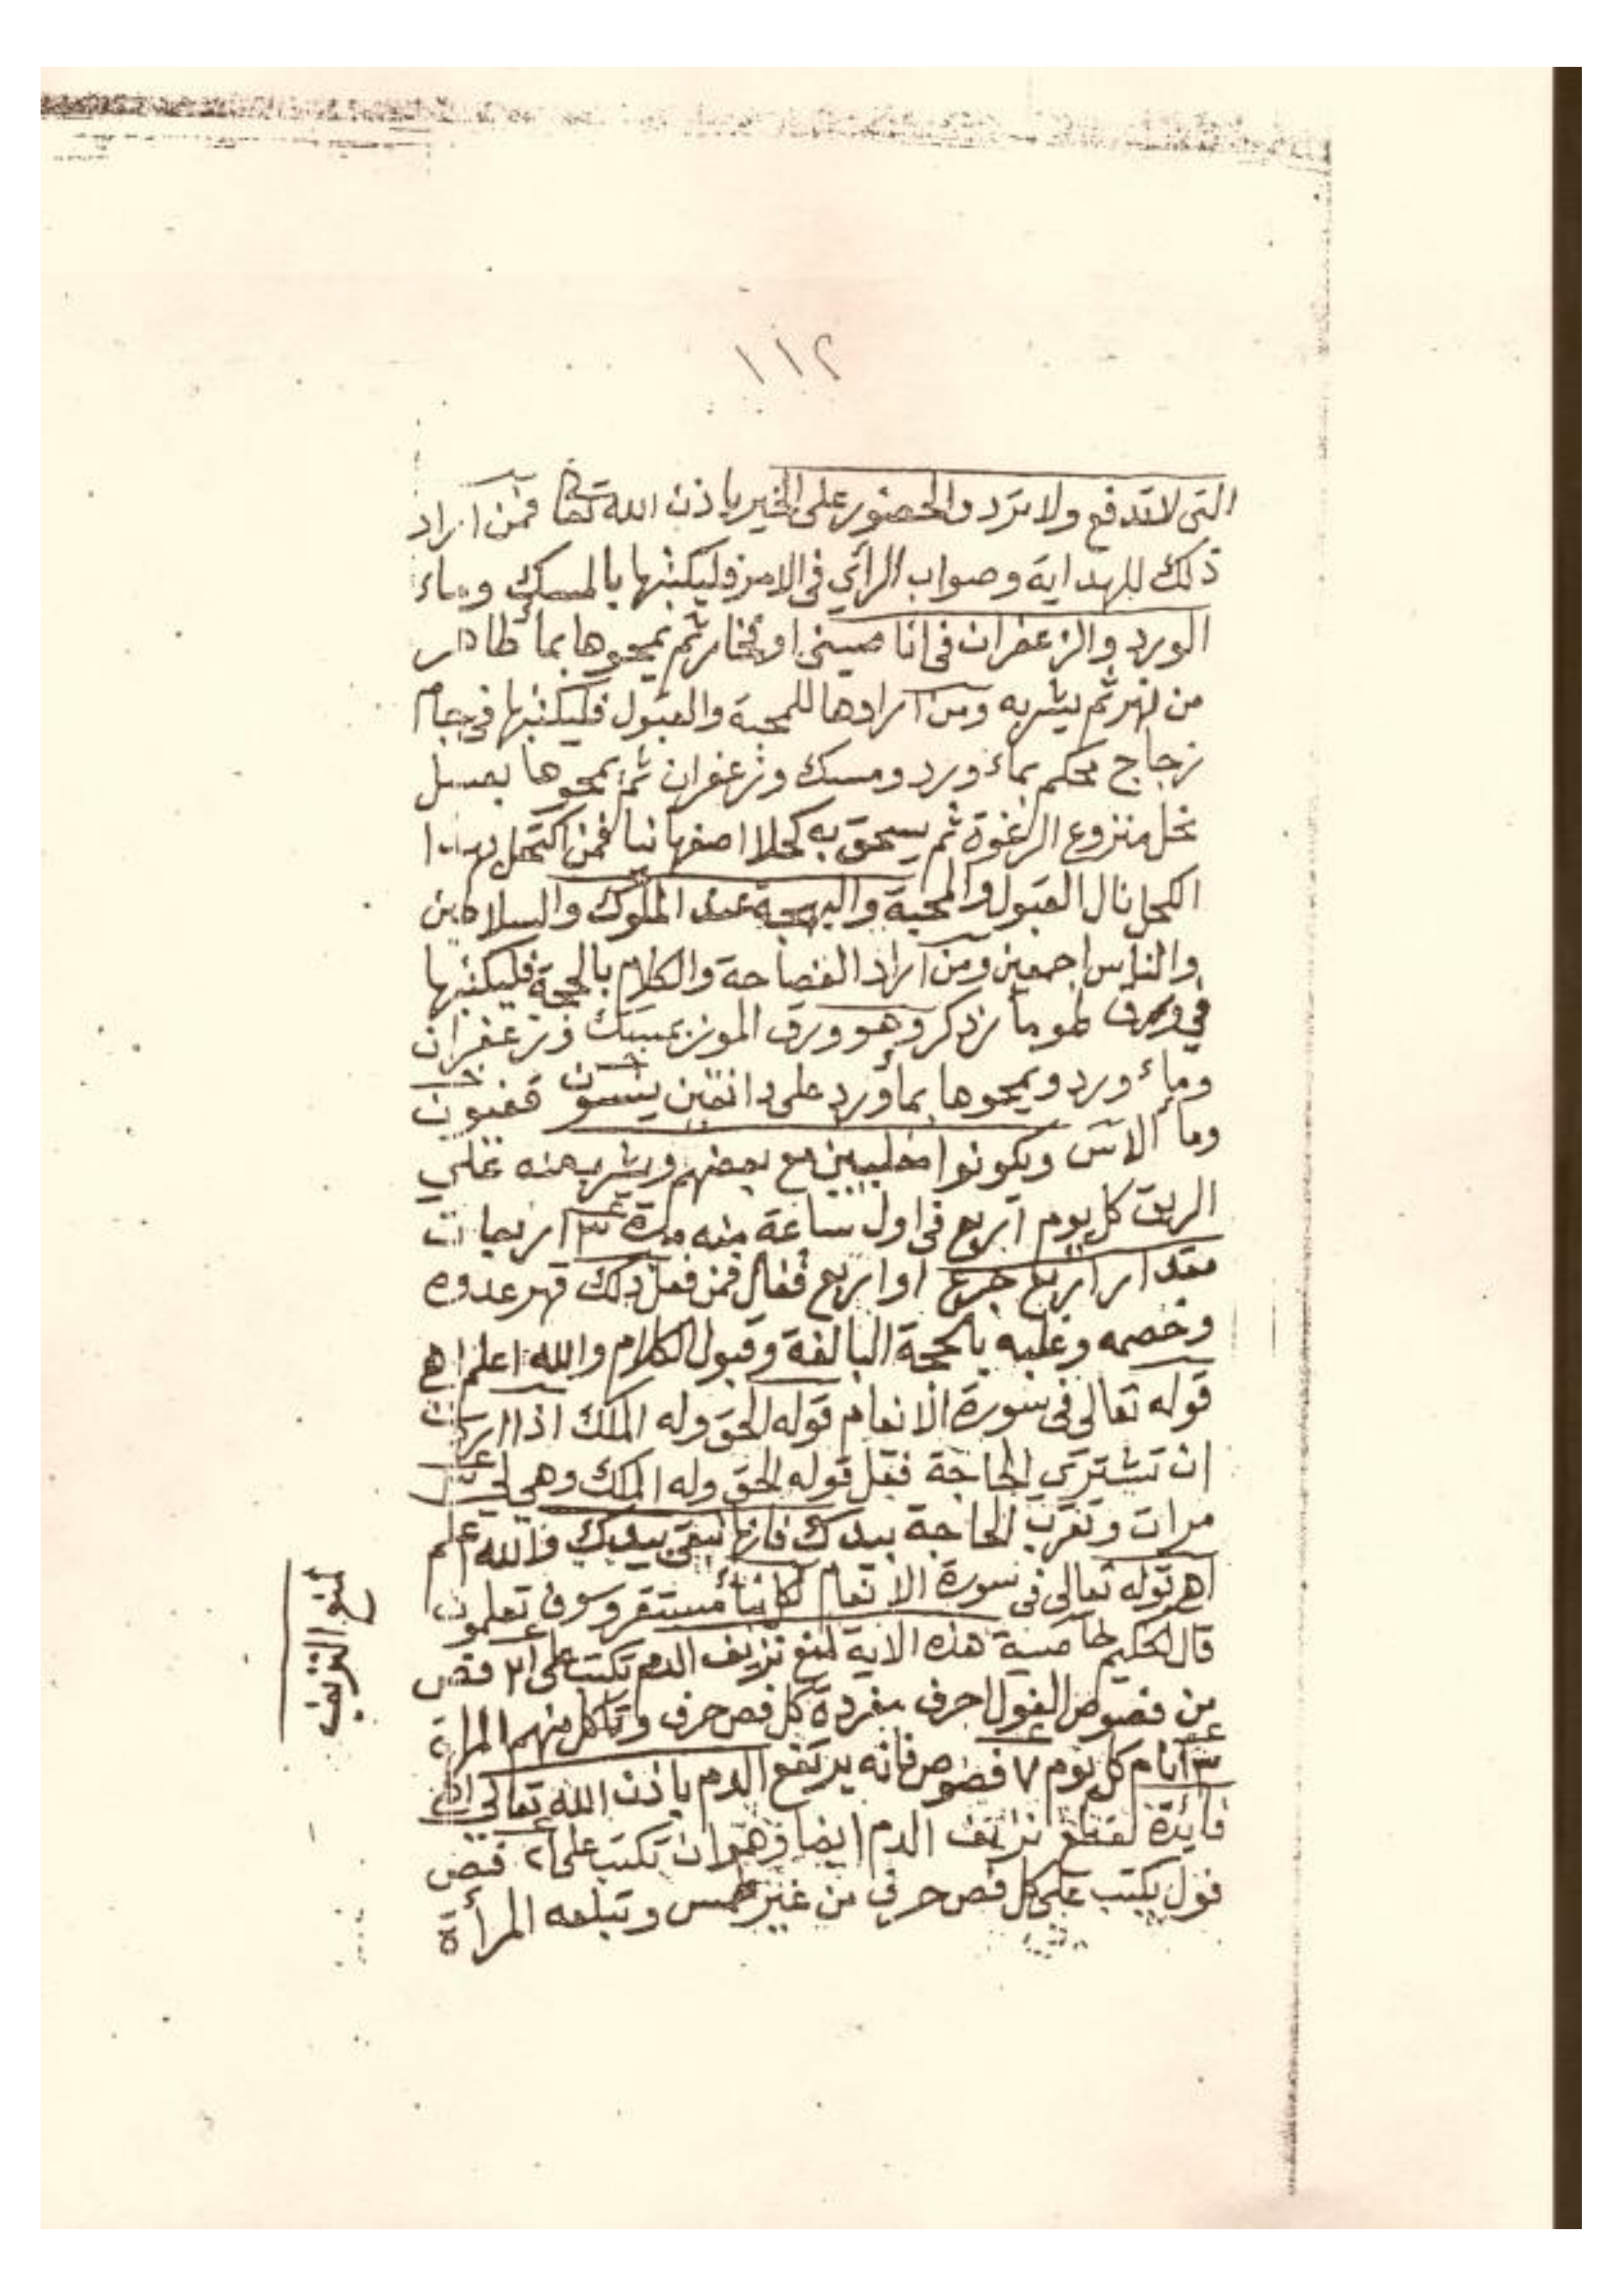 ١١٢
التى لا تدفع ولا ترد والحضور على الخير باذن الله تعا فمن اراد
ذلك للهداية وصواب الرأي فى الامر فليكتبها بالمسك وماء
الورد والزعفران فى انا صينى او فخار ثم يمحوها بماء طاهر
من نهر ثم يشربه ومن ارادها للمحبة والقبول فليكتبها في جام
زجاج محكم بماء ورد ومسك وزعفران ثم يمحوها بعسل
نحل منزوع الرغوة ثم يسحق به كحلا اصفهانيا فمن اكتحل بهذا
الكحل نال القبول والمحبة والبهجة عند الملوك والسلاطين
والناس اجمعين ومن اراد الفصاحة والكلام بالحجة فليكتبها
في ورق وهو ورق الموز بمسك وزعفران
وماء ورد ويمحوها بما ورد على دانقين
وما الاس ويكونوا مع بعضهم ويشرب منه على
الريق كل يوم اربع فى اول ساعة منه مدة ٣ اربعات
مقدار اربع جرع او اربع فمن فعل ذلك قهر عدوه
وخصمه وغلبه بالحجة البالغة وقبول الكلام والله اعلم اهـ
قوله تعالى فى سورة الانعام قوله الحق وله الملك اذا اردت
ان تشتري الحاجة فقل قوله الحق وله الملك وهي
مرات وتقرب الحاجة بيدك فانها تبقى بيدك والله اعلم
اهـ قوله تعالى فى سورة الانعام لكل نبأ مستقر وسوف تعلمون
قال الحكيم خاصية هذه الاية لمنع نزيف الدم تكتب على ٢١ فص
من فصوص الفول احرف مفردة كل فص حرف وتاكل منهم المراة
٣ أيام كل يوم ٧ فصوص فانه يرتفع الدم باذن الله تعالى اهـ
فائدة لقطع نزيف الدم ايضا وهو ان تكتب على ٢١ فص
فول يكتب على كل فص حرف من غير طمس وتبلعه المرأة
لمنع النزيف